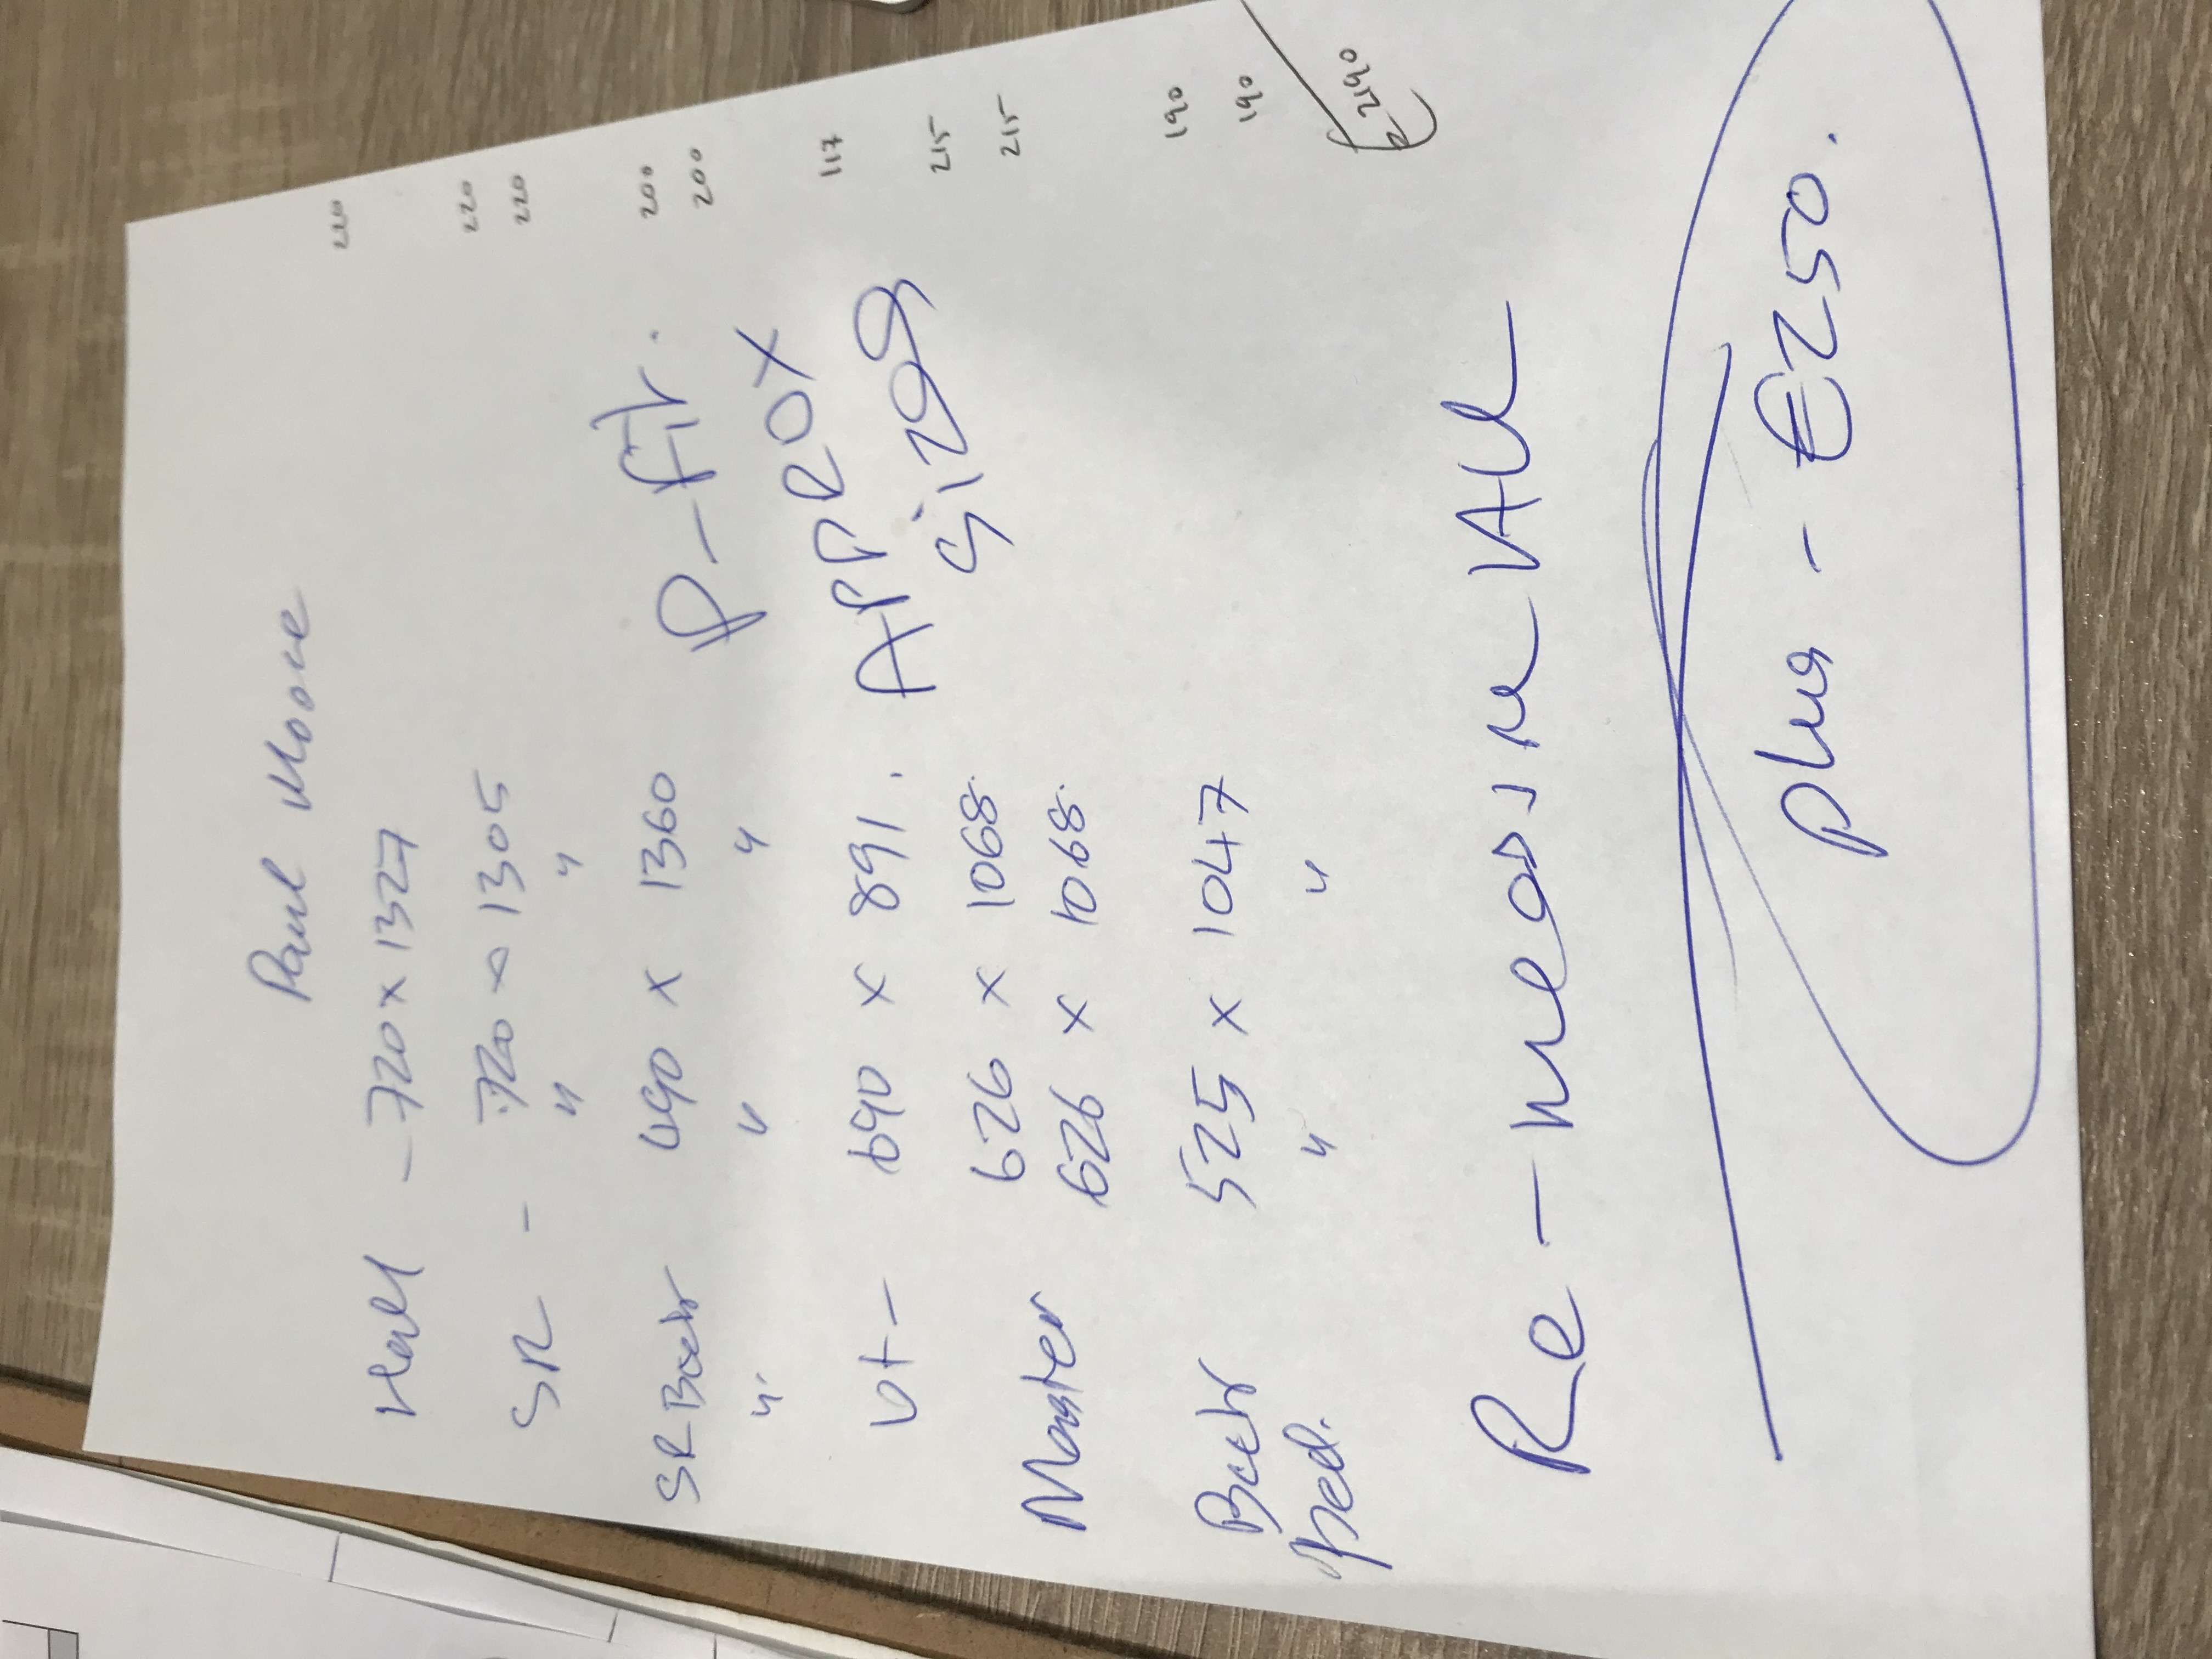 Paul Moore
Hall - 720 x 1327 220
SR - 720 x 1305 220
" " 220
SR Back 690 x 1360 200
" " " 200
P-Fit.
Ut - 690 x 891. 117
APPROX
Sizes
626 x 1068. 215
Master 626 x 1068. 215
Back 525 x 1047 190
Bed. " " 190
2190
Re-measure
plus - €250.